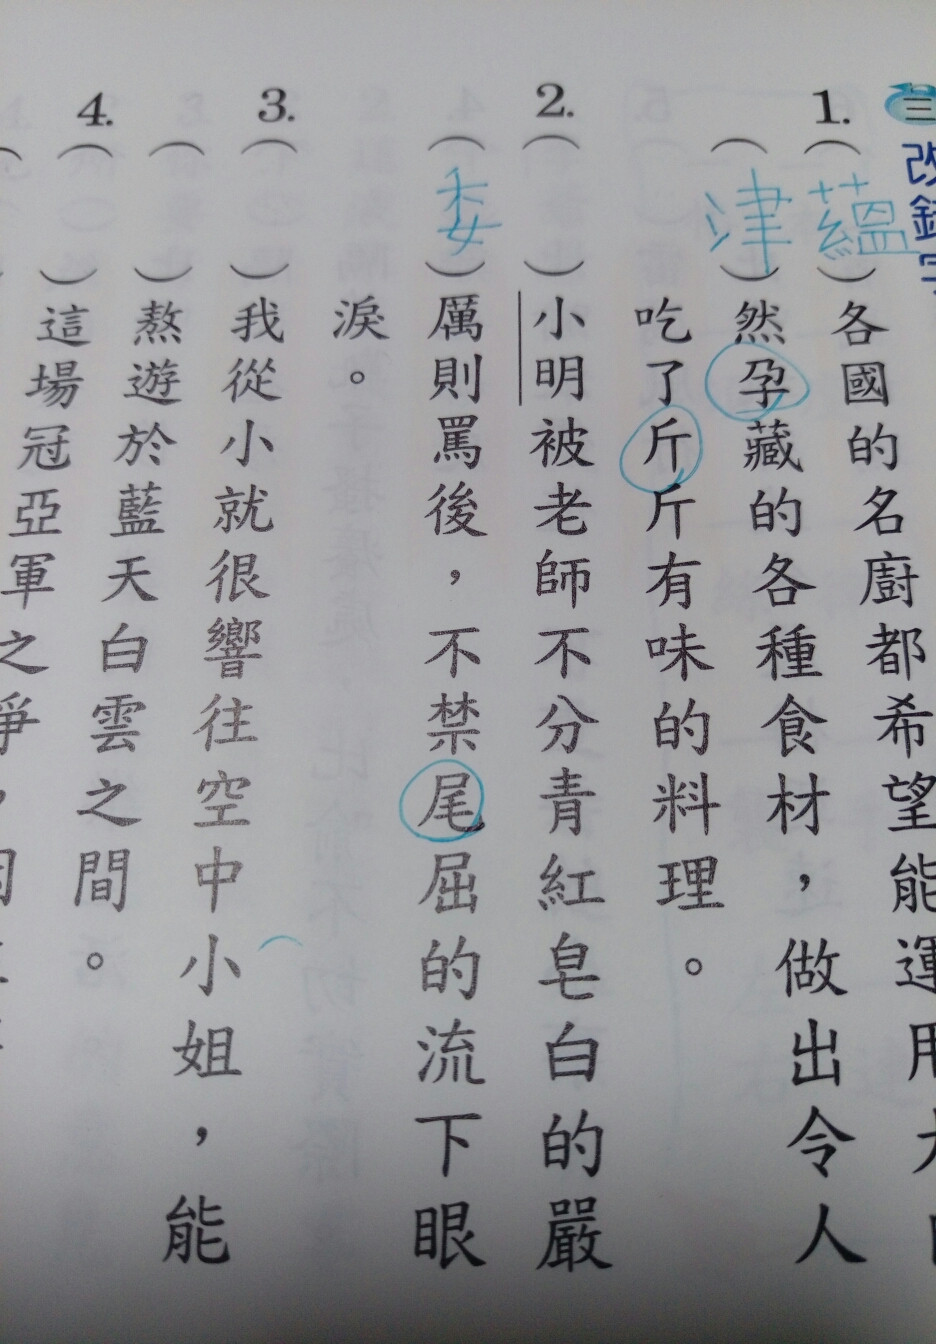 三 改錯字
1.
(蘊)各國的名廚都希望能運用大
(津)然孕藏的各種食材，做出令人
吃了斤斤有味的料理。
2.
( )小明被老師不分青紅皂白的嚴
(委)厲則罵後，不禁尾屈的流下眼
淚。
3.
( )我從小就很響往空中小姐，能
( )熬遊於藍天白雲之間。
4.
( )這場冠亞軍之